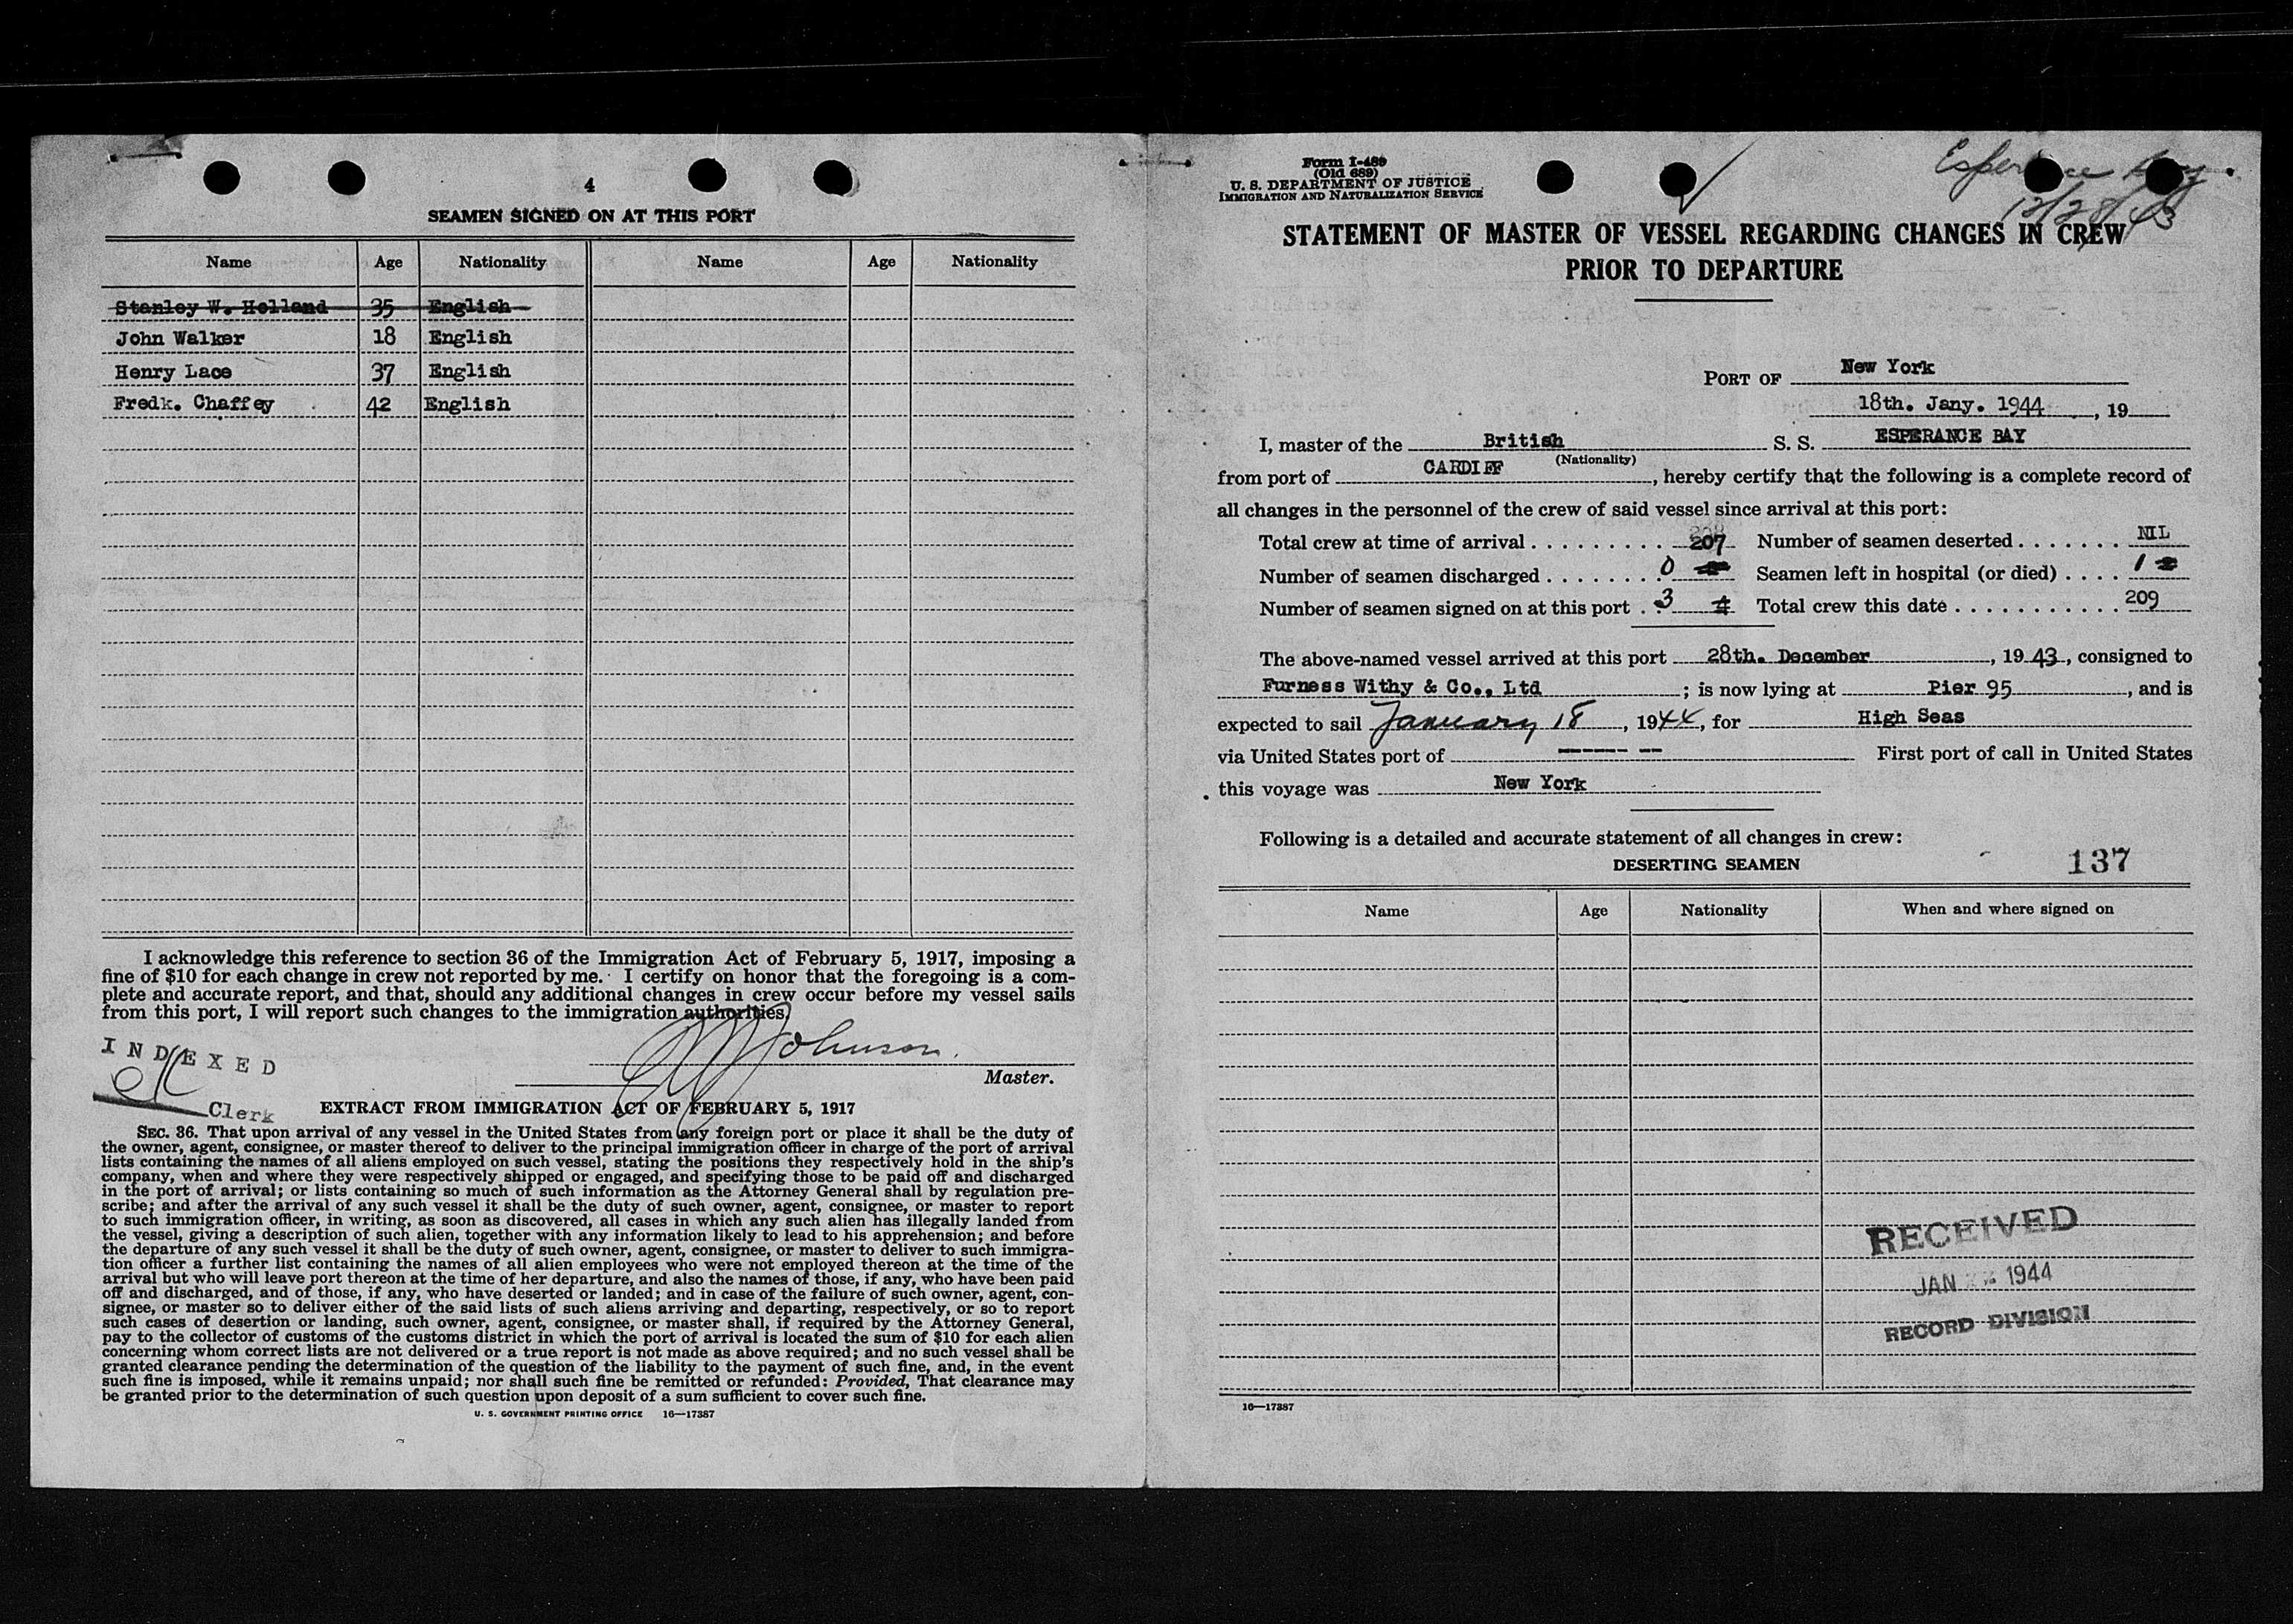 4
SEAMEN SIGNED ON AT THIS PORT
Name Age Nationality Name Age Nationality
Stanley W. Holland 35 English
John Walker 18 English
Henry Lace 37 English
Fredk. Chaffey 42 English
I acknowledge this reference to section 36 of the Immigration Act of February 5, 1917, imposing a
fine of $10 for each change in crew not reported by me. I certify on honor that the foregoing is a com-
plete and accurate report, and that, should any additional changes in crew occur before my vessel sails
from this port, I will report such changes to the immigration authorities.
Johnson
Master.
INDEXED
Clerk
EXTRACT FROM IMMIGRATION ACT OF FEBRUARY 5, 1917
SEC. 36. That upon arrival of any vessel in the United States from any foreign port or place it shall be the duty of
the owner, agent, consignee, or master thereof to deliver to the principal immigration officer in charge of the port of arrival
lists containing the names of all aliens employed on such vessel, stating the positions they respectively hold in the ship's
company, when and where they were respectively shipped or engaged, and specifying those to be paid off and discharged
in the port of arrival; or lists containing so much of such information as the Attorney General shall by regulation pre-
scribe; and after the arrival of any such vessel it shall be the duty of such owner, agent, consignee, or master to report
to such immigration officer, in writing, as soon as discovered, all cases in which any such alien has illegally landed from
the vessel, giving a description of such alien, together with any information likely to lead to his apprehension; and before
the departure of any such vessel it shall be the duty of such owner, agent, consignee, or master to deliver to such immigra-
tion officer a further list containing the names of all alien employees who were not employed thereon at the time of the
arrival but who will leave port thereon at the time of her departure, and also the names of those, if any, who have been paid
off and discharged, and of those, if any, who have deserted or landed; and in case of the failure of such owner, agent, con-
signee, or master so to deliver either of the said lists of such aliens arriving and departing, respectively, or so to report
such cases of desertion or landing, such owner, agent, consignee, or master shall, if required by the Attorney General,
pay to the collector of customs of the customs district in which the port of arrival is located the sum of $10 for each alien
concerning whom correct lists are not delivered or a true report is not made as above required; and no such vessel shall be
granted clearance pending the determination of the question of the liability to the payment of such fine, and, in the event
such fine is imposed, while it remains unpaid; nor shall such fine be remitted or refunded: Provided, That clearance may
be granted prior to the determination of such question upon deposit of a sum sufficient to cover such fine.
U. S. GOVERNMENT PRINTING OFFICE 16—17387
Form I-489
(Old 689)
U. S. DEPARTMENT OF JUSTICE
IMMIGRATION AND NATURALIZATION SERVICE
12/28/43
STATEMENT OF MASTER OF VESSEL REGARDING CHANGES IN CREW
PRIOR TO DEPARTURE
PORT OF New York
18th. Jany. 1944, 19
I, master of the British S. S. ESPERANCE BAY
(Nationality)
from port of CARDIFF, hereby certify that the following is a complete record of
all changes in the personnel of the crew of said vessel since arrival at this port:
Total crew at time of arrival 207 Number of seamen deserted NIL
Number of seamen discharged 0 Seamen left in hospital (or died) 1
Number of seamen signed on at this port 3 4 Total crew this date 209
The above-named vessel arrived at this port 28th. December, 1943, consigned to
Furness Withy & Co., Ltd; is now lying at Pier 95, and is
expected to sail January 18, 1944, for High Seas
via United States port of ------ -- First port of call in United States
this voyage was New York
Following is a detailed and accurate statement of all changes in crew:
DESERTING SEAMEN
137
Name Age Nationality When and where signed on
RECEIVED
JAN 1944
RECORD DIVISION
16—17387